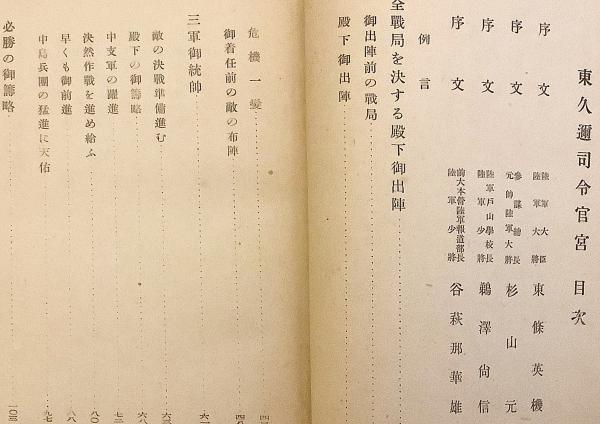 東久邇司令官宮 目次
序文 陸軍大臣 陸軍大將 東條英機
序文 參謀總長 元帥陸軍大將 杉山元
序文 陸軍戸山學校長 陸軍少將 鵜澤尚信
序文 前大本營陸軍報道部長 陸軍少將 谷萩那華雄
例言
全戰局を決する殿下御出陣
御出陣前の戰局
殿下御出陣
危機一髮
御着任前の敵の布陣
三軍御統帥
敵の決戰準備進む
殿下の御籌略
中支軍の躍進
決然作戰を進め給ふ
早くも御前進
中島兵團の猛進に天佑
必勝の御籌略